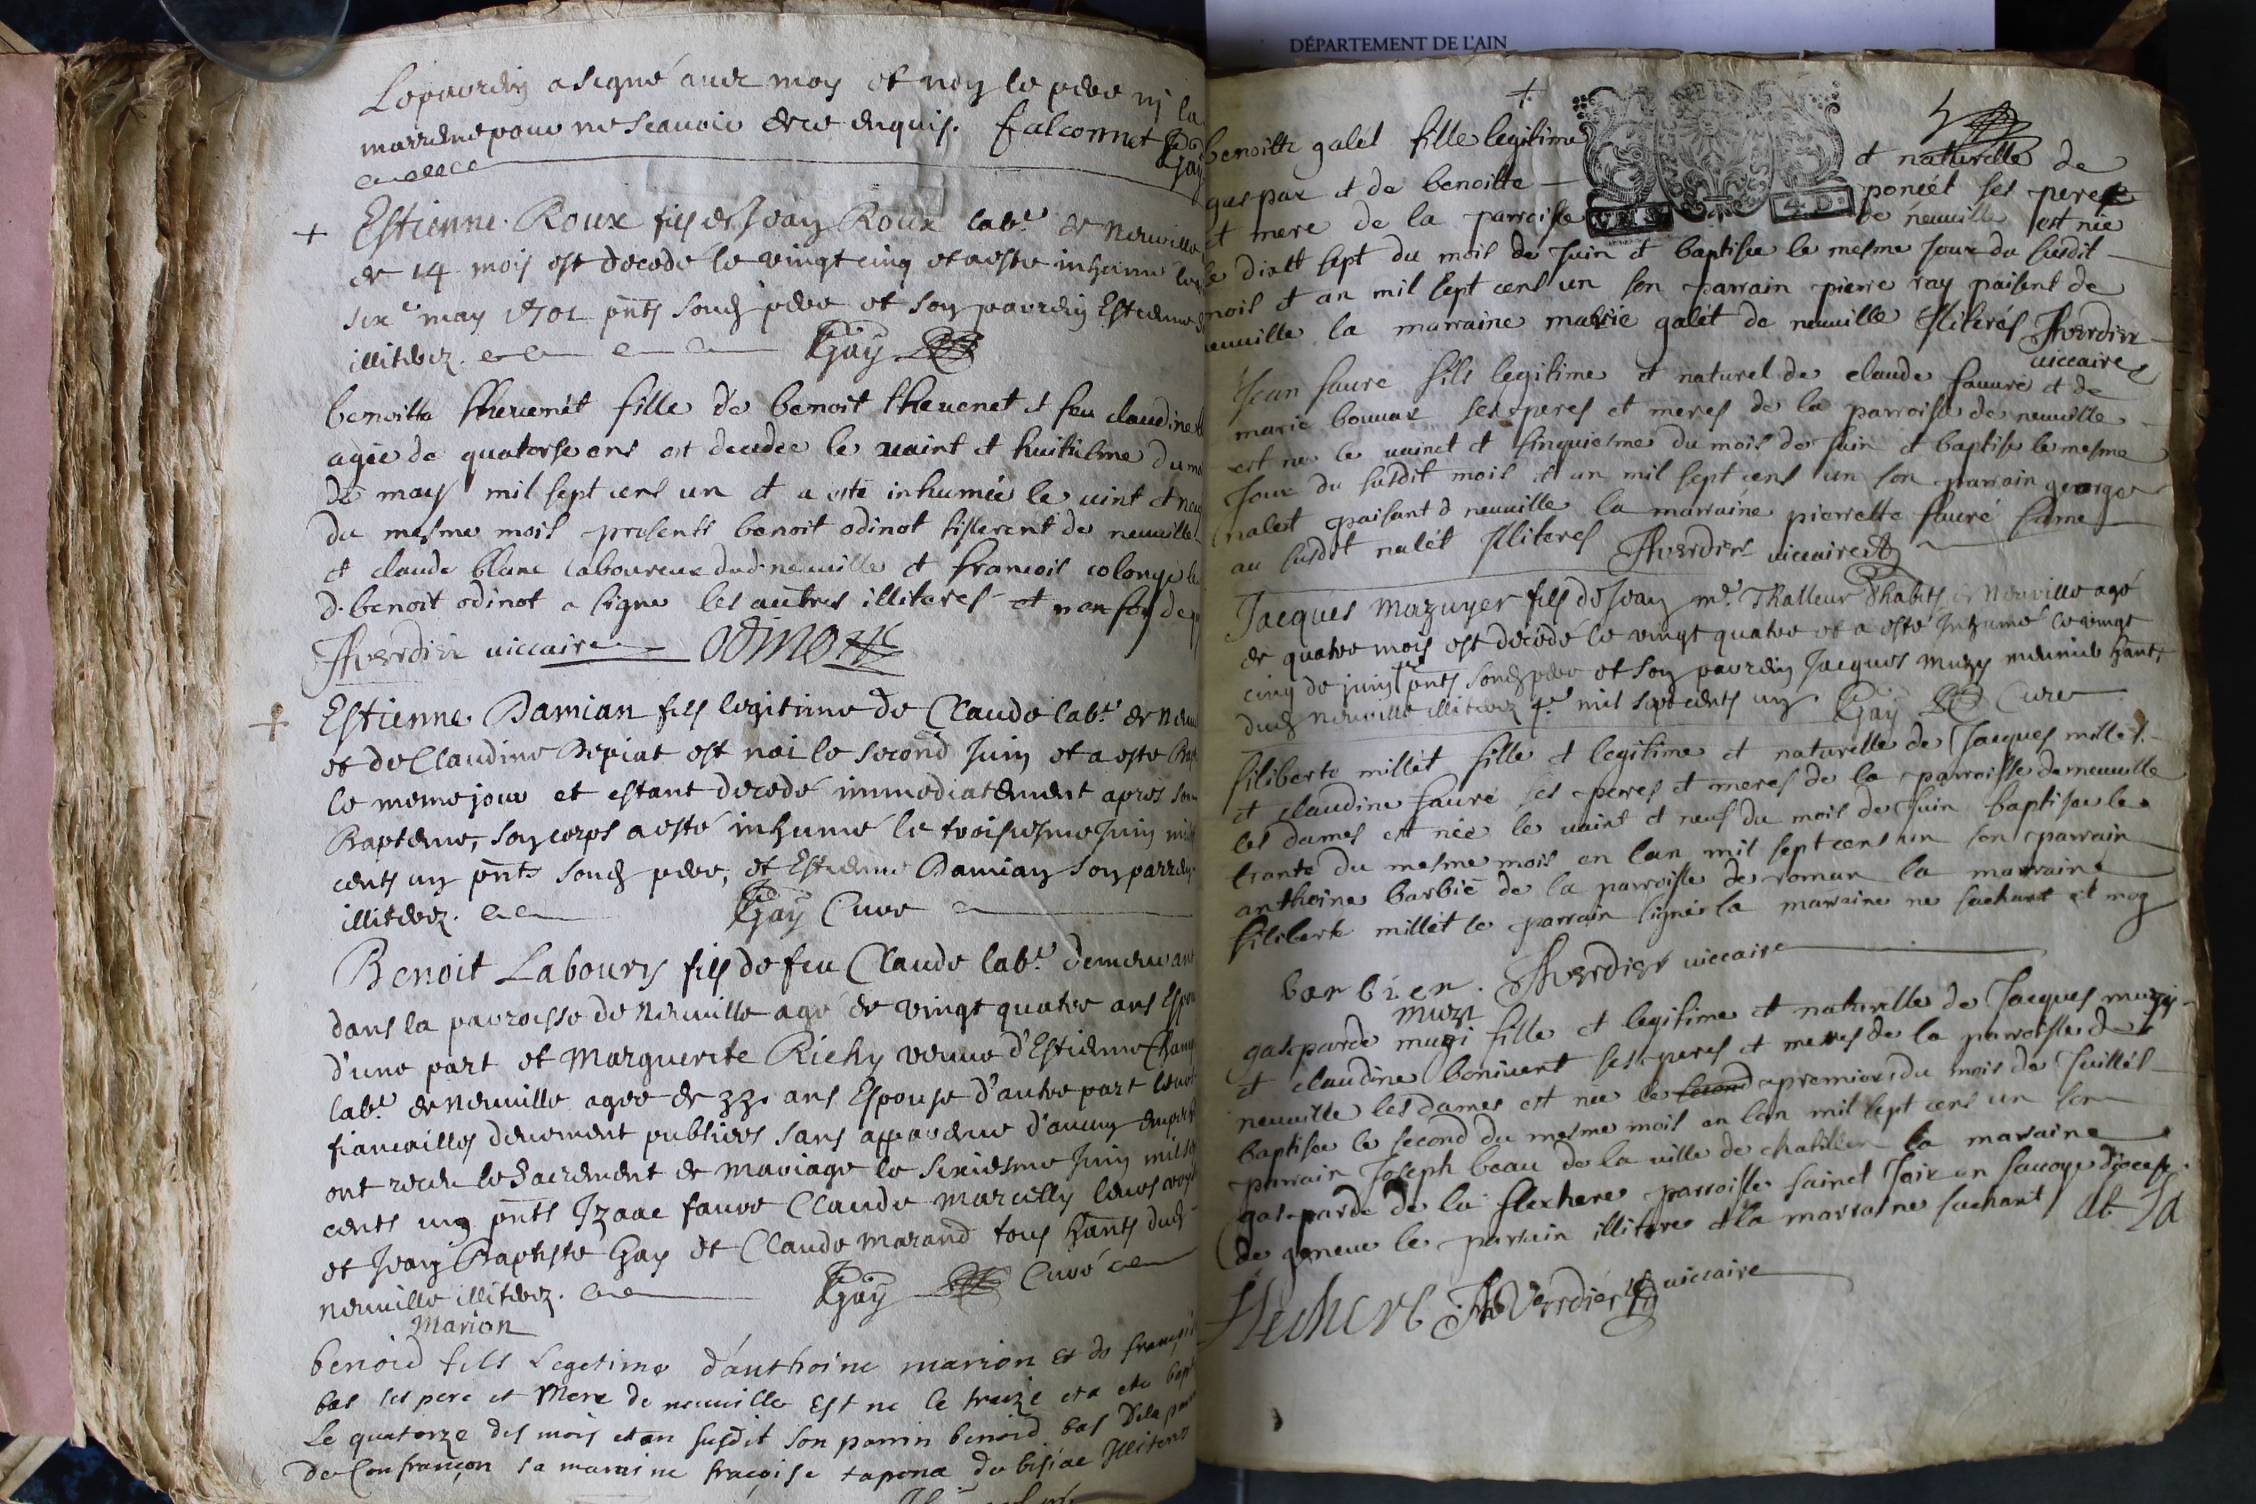 Le parrein a signé avec moy et non le pere ni la
marrene pour ne scavoir de ce enquis. falconnet Gay
Estienne Roux fils de Jean Roux lab.r de Neuville
de 14 mois est decedé le vingt cinq et a esté inhumé
six.e may 1701 pnts sond. pere et son parrein Estienne
illiterez. Gay
benoitte thevenét fille de benoit thevenet et feu claudine
agée de quatorse ans est decedee le vaint et huitiesme du
de may mil sept cens un et a esté inhumée le vint et neu
du mesme mois presents benoit odinot tisserent de neuville
et claude blanc laboureur dud. neuville et francois colonge le
d. benoit odinot a signe les autres illiteres et non
Averdier viccaire odinot
Estienne Damian fils legitime de Claude lab.r de Neuv
et de Claudine Bepiat est nai le second Juin et a esté Bap
le meme jour et estant decedé immediatement apres son
Bapteme, son corps a esté inhumé le troisiesme Juin mil
cents un pnts sond. pere, et Estienne Damian son parrein
illiterez. Gay Curé
Benoit Labourys fils de feu Claude lab.r demeurant
dans la parroisse de Neuville agé de vingt quatre ans Espou
d'une part et Marguerite Richy veuve d'Estienne Cham
lab.r de Neuville agee de 33. ans Espouse d'autre part leurs
fiancailles deuement publiees sans apparence d'aucun emp
ont receu le Sacrement de Mariage le sixiesme Juin mil
cents un pnts Izaac faure Claude Marcilly
et Jean Baptiste Gay et Claude Marand tous hants dud.
Neuville illiterez. Gay Curé
Marion
benoid fils Legetime d'anthoine marion et de françoi
bas ses pere et Mere de neuville Est ne le treize et a ete bapt
Le quatorze des mois et an susdit son parrin benoid bas De la
De Confrançon sa marraine fraçoise tapona de bisiac Illiteres
DÉPARTEMENT DE L'AIN
benoitte galét fille legitime et naturelle de
gaspar et de benoitte poncét ses pere
et mere de la parroisse de neuville est née
le dixt sept du mois de Juin et baptisee le mesme jour du susdit
mois et an mil sept cens un son parrain pierre ray paisent de
neuville la marraine marie galét de neuville Illiterés Averdier
viccaire
Jean fauré fils legitime et naturel de claude fauuré et de
marie bouvar ses peres et meres de la parroisse de neuville
est ne le vainct et sinquiesme du mois de Juin et baptise le mesme
Jour du susdit mois et an mil sept cens un son parrain george
nalet paisant d neuville la marraine pierrette fauré fame
au susdit nalét Illiteres Averdier viccaire
Jacques Mazuyer fils de Jean m.e Tralleur habit de Neuville agé
de quatre mois est decedé le vingt quatre et a esté Inhumé le vingt
cinq de juin pnts sond. pere et son parrein Jacques Muzy meunier hant
dud. Neuville illiterez mil sept cents un Gay Curé
filiberte millét fille et legitime et naturelle de Jacques millét
et claudine fauré ses peres et meres de la parroisse de neuville
les dames est née le vaint et neuf du mois de Juin baptisee le
trante du mesme mois en lan mil sept cens un son parrain
anthoine barbié de la parroisse de roman la marraine
filiberte millét le parrain signés la marraine ne sachant et moy
barbier. Averdier viccaire
muzi
gasparde muzi fille et legitime et naturelle de Jacques muzy
et claudine bonivent ses peres et meres de la parroisse de
neuville les dames est nee le premier du mois de Juillét
baptisee le second du mesme mois en lan mil sept cens un son
parrain Joseph beau de la ville de chatillon la maraine
gasparde de la flechere parroisse sainct Joix en savoye diocese
de geneve le parrain illitere et la marraine sachant
flechere Averdier viccaire